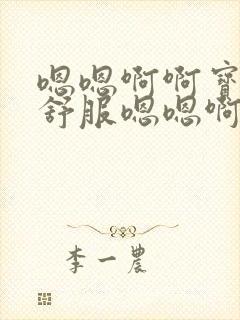 嗯嗯啊啊宝
舒服嗯嗯啊
李一農